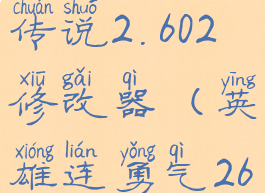 chuán shuō
传说2.602
xiū gǎi qì yīng
修改器(英
xióng lián yǒng qì
雄连勇气26